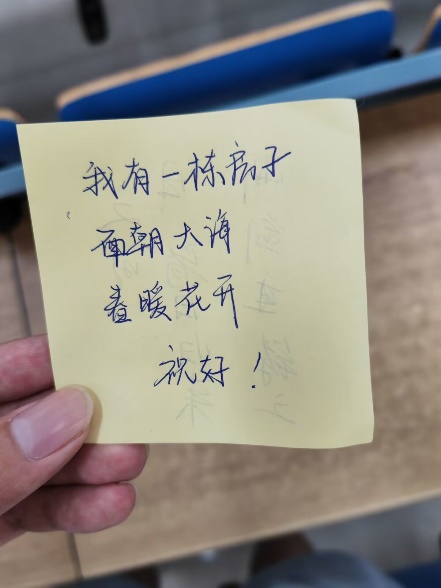 我有一栋房子
面朝大海
春暖花开
祝好！